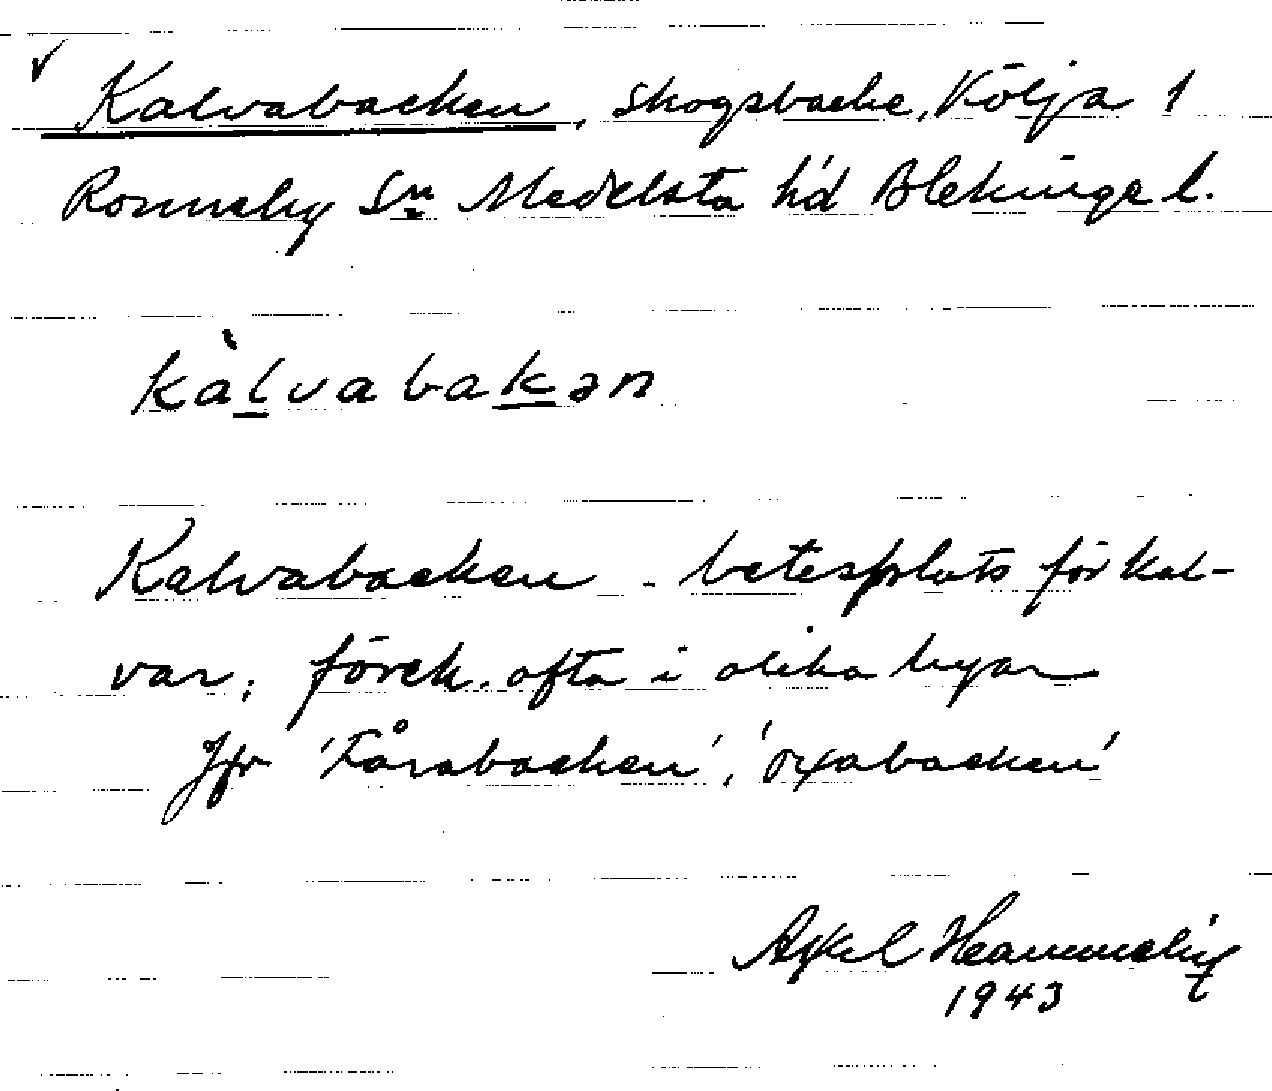 Kalvabacken, skogsbacke, Kölja 1
Ronneby Sn Medelsta hd Blekinge l.
kàlvabakən
Kalvabacken - betesplats för kal-
var; förek. ofta i olika byar
Jfr 'Fårabacken', 'Oxabacken'
Axel
1943